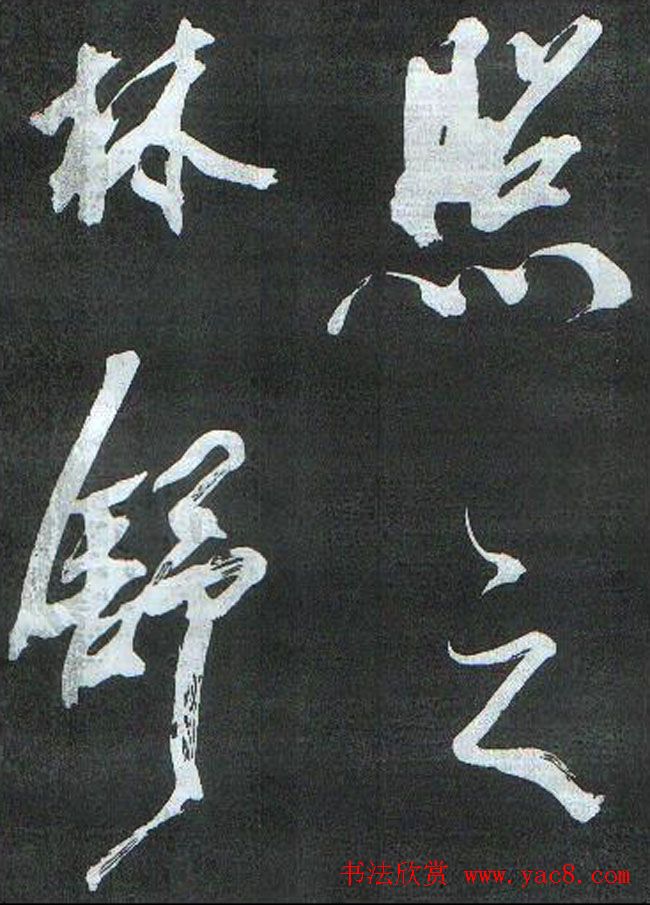 照之
林舒
书法欣赏 www.yac8.com